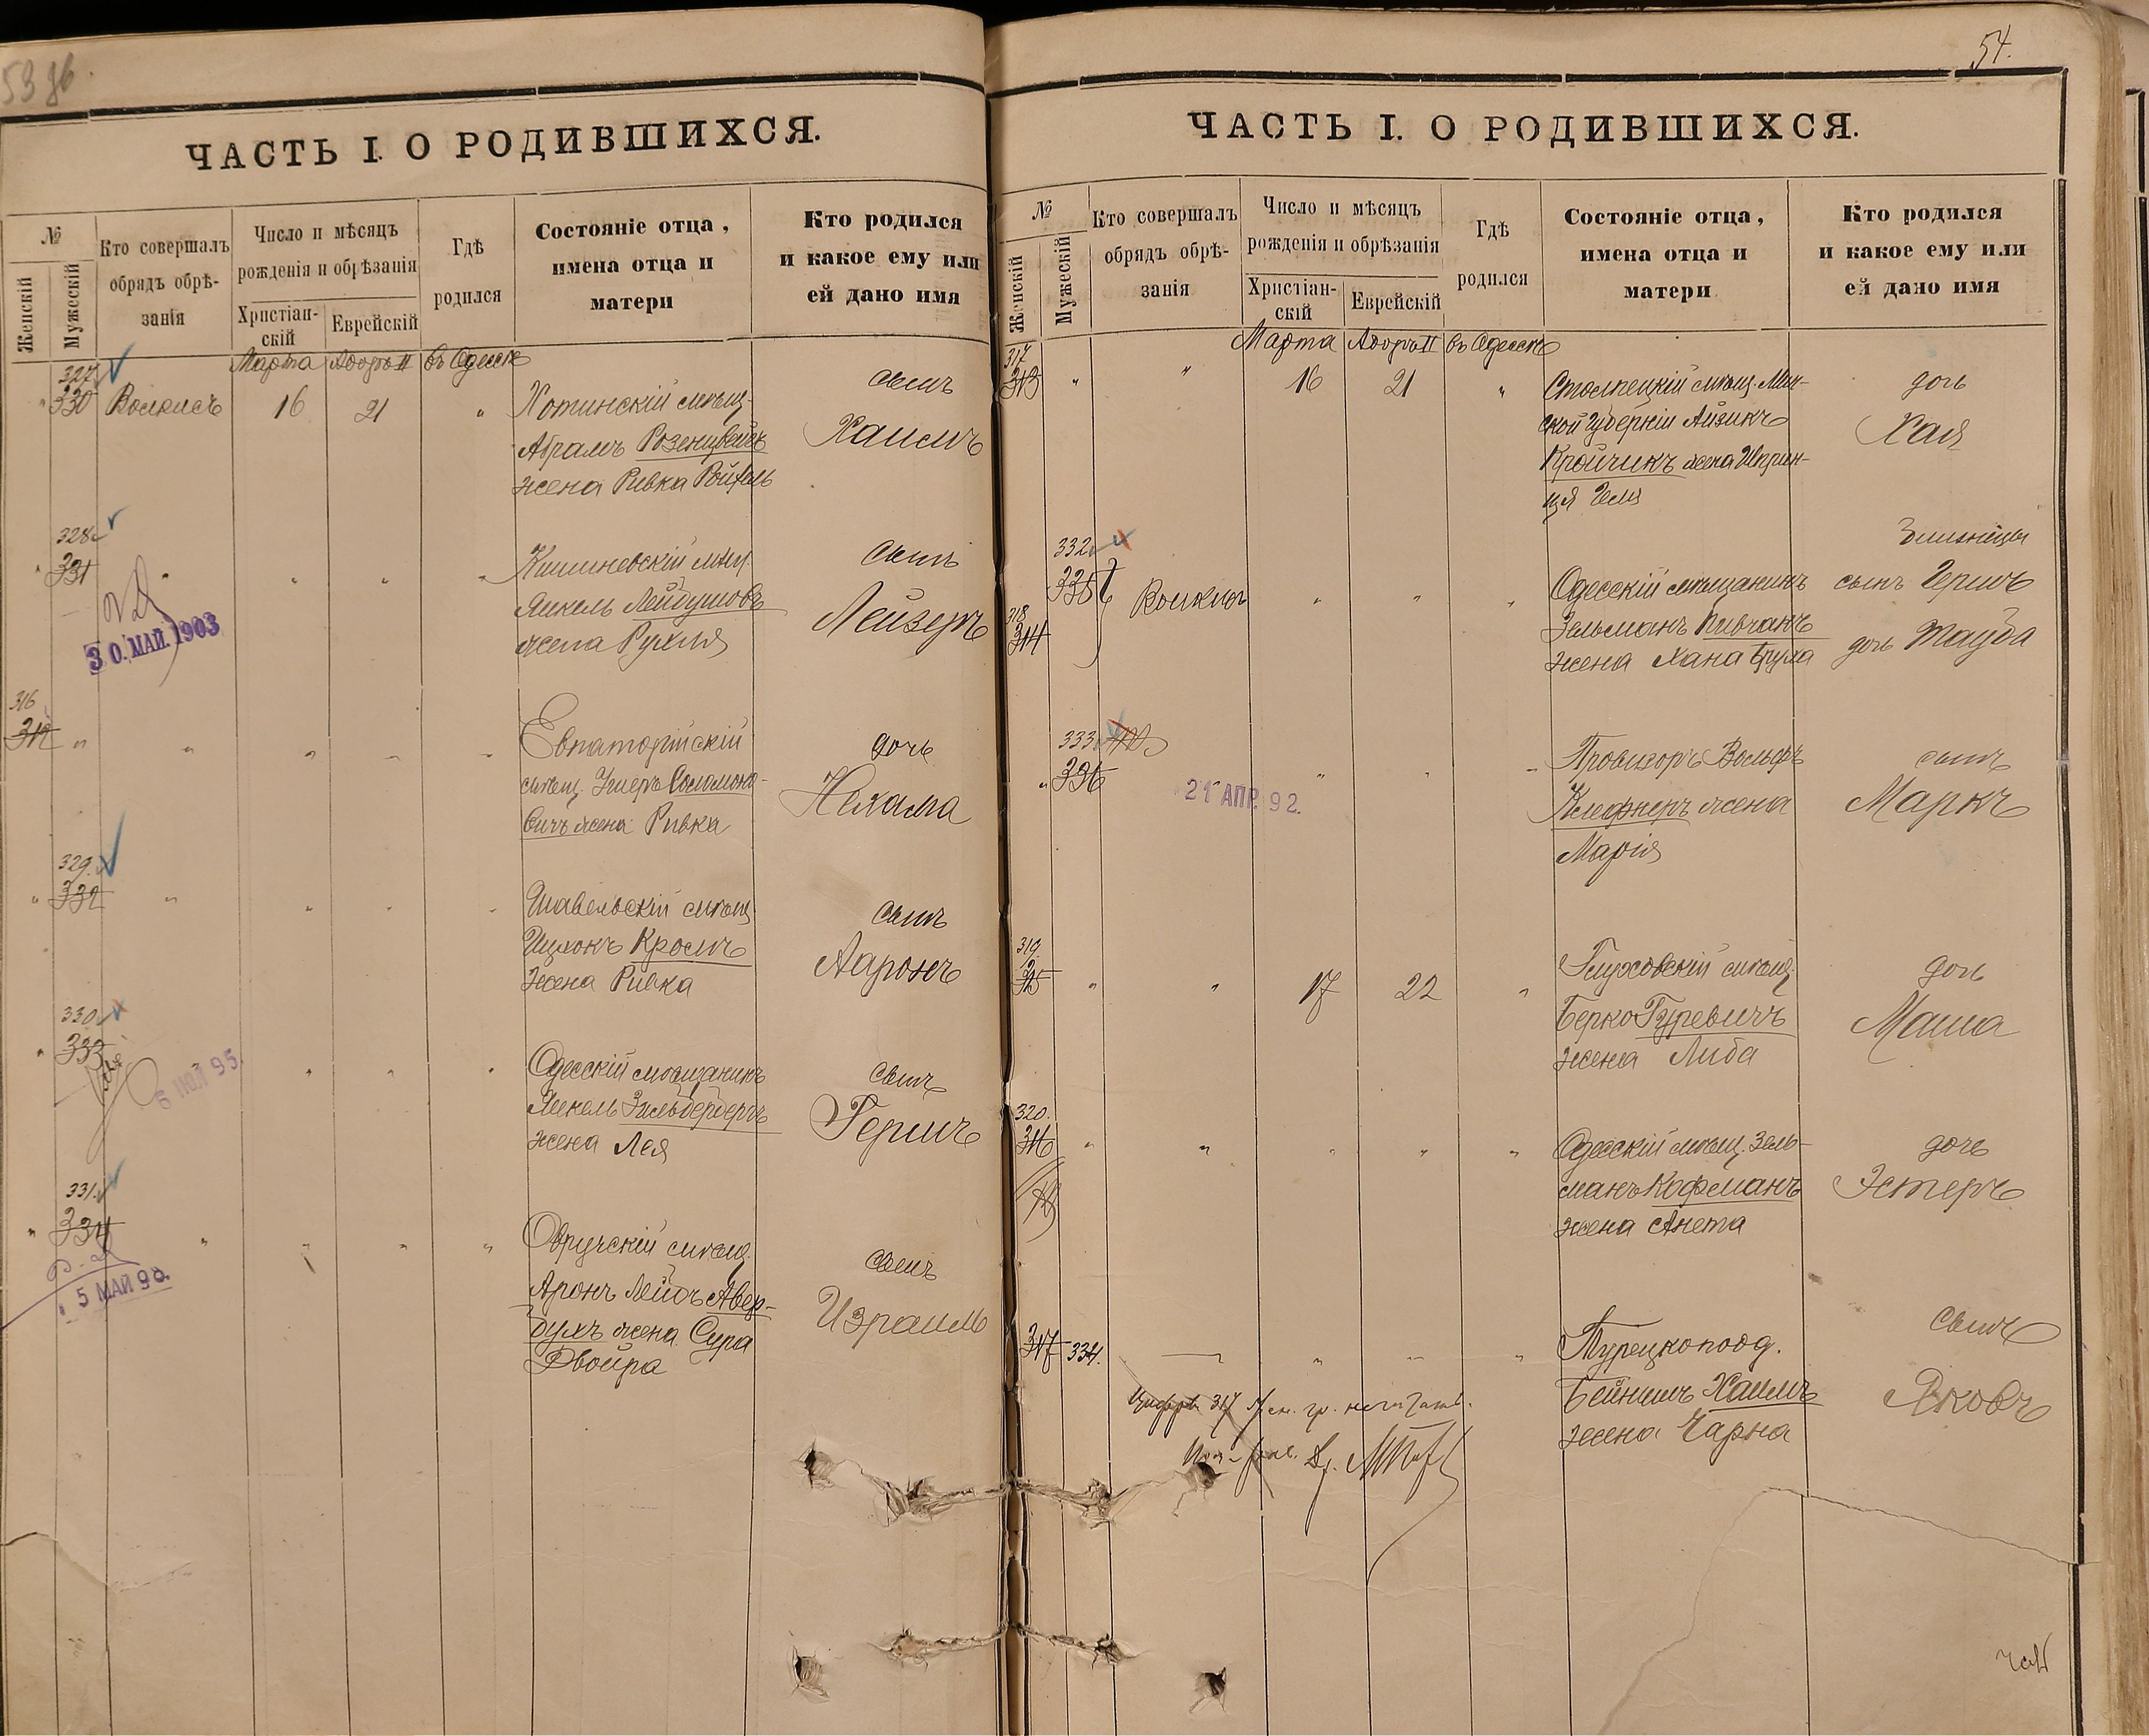 ЧАСТЬ I. О РОДИВШИХСЯ.
№
Женскій
Мужескій
Кто совершалъ
обрядъ обрѣ-
занія
Число и мѣсяцъ
рожденія и обрѣзанія
Христіан-
скій
Еврейскій
Гдѣ
родился
Состояніе отца,
имена отца и
матери
Кто родился
и какое ему или
ей дано имя
Марта Адоръ II въ Одессѣ
327
330 16 21 "
Хотинскій мѣщ.
Абрамъ Розенцвейгъ
жена Ривка Ройхель
сынъ
Хаимъ
328
331
30. МАЙ. 1903
Кишиневскій мѣщ.
Янкель Лейбушовъ
жена Рухля
сынъ
Лейзеръ
316
312
Евпаторійскій
мѣщ. Соломоно-
вичъ жена Ривка
дочь
Нехама
329.
332
Шавельскій мѣщ.
Ицхокъ Кромъ
жена Ривка
сынъ
Ааронъ
330
333
6 ИЮЛ 95.
Одесскій мѣщанинъ
Янкель Зильберберъ
жена Лея
сынъ
Гершъ
331.
334
5 МАЙ 98.
Овручскій мѣщ.
Аронъ Лейбъ Авер-
бухъ жена Сура
Двойра
сынъ
Израиль
54.
ЧАСТЬ I. О РОДИВШИХСЯ.
№
Женскій
Мужескій
Кто совершалъ
обрядъ обрѣ-
занія
Число и мѣсяцъ
рожденія и обрѣзанія
Христіан-
скій
Еврейскій
Гдѣ
родился
Состояніе отца,
имена отца и
матери
Кто родился
и какое ему или
ей дано имя
Марта Адоръ II въ Одессѣ
317
313 " " 16 21 "
Столпецкій мѣщ. Мин-
ской губерніи Айзикъ
Кройчикъ жена Шприн-
ця Геля
дочь
Хая
332
335
318
314
Одесскій мѣщанинъ
Зельманъ Пивчанъ
жена Хана Брула
Близнецы
сынъ Гершъ
дочь Тауба
333
336
21 АПР. 92.
Провизоръ Вольфъ
Клефнеръ жена
Марія
сынъ
Маркъ
319.
315 " " 17 22 "
Глуховскій мѣщ.
Берко Гуревичъ
жена Либа
дочь
Маша
320.
316
Одесскій мѣщ. Зель-
манъ Кофманъ
жена Анета
дочь
Эстеръ
317 334.
Турецкоподд.
Бейнишъ Хаимъ
жена Чарна
сынъ
Яковъ